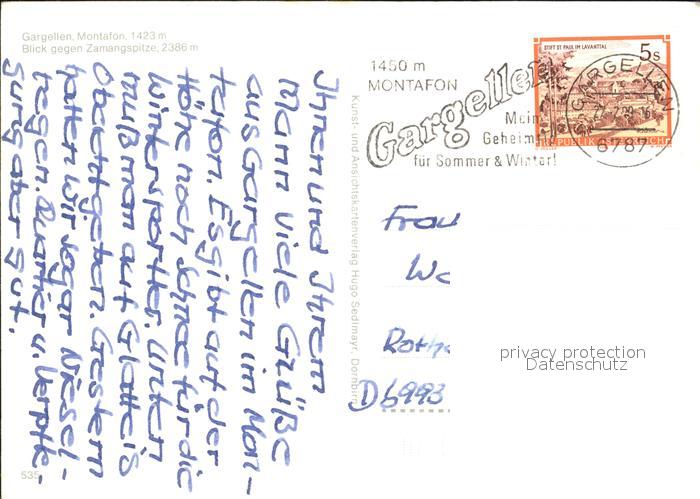 Gargellen, Montafon, 1423 m
Blick gegen Zamangspitze, 2386 m
Ihnen und Ihrem
Mann viele Grüße
aus Gargellen im Mon-
tafon. Es gibt auf der
Höhe noch Schnee für die
Wintersportler. Unten
muß man auf Glatteis
Obacht geben. Gestern
hatten wir sogar Niesel-
regen. Quartier u. Verpfle-
gung aber gut.
535
Kunst- und Ansichtskartenverlag Hugo Sedlmayr, Dornbirn
1450 m
MONTAFON
Gargellen
Mein
Geheim
für Sommer & Winter!
STIFT ST. PAUL IM LAVANTTAL
5 S
REPUBLIK
GARGELLEN
6787
Frau
D6993
privacy protection
Datenschutz